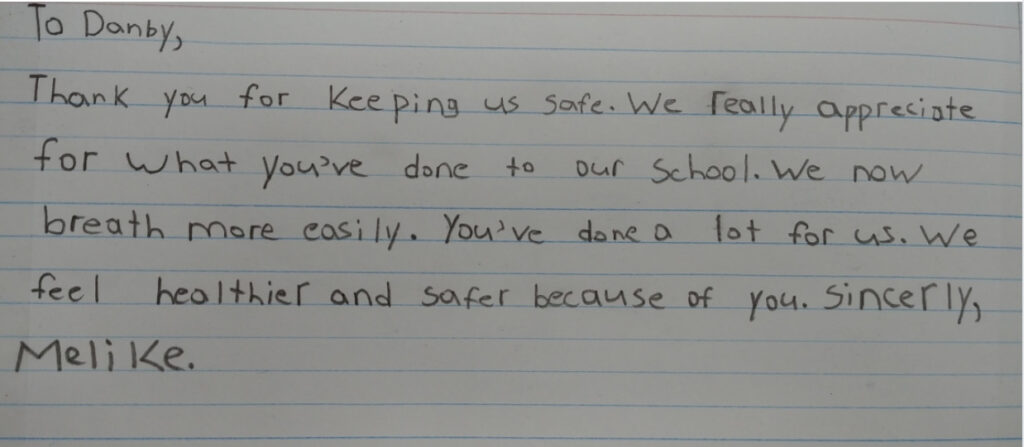 To Danby,
Thank you for Keeping us safe. We really appreciate
for what you've done to our School. We now
breath more easily. You've done a lot for us. We
feel healthier and safer because of you. Sincerly,
Melike.